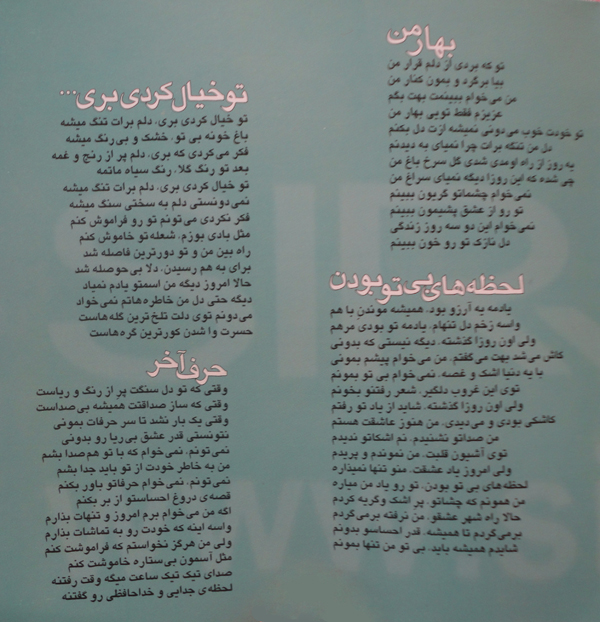 بهار من
تو که بردی از دلم قرار من
بیا برگرد و بمون کنار من
من می‌خوام ببینمت بهت بگم
عزیزم فقط تویی بهار من
تو خودت خوب می‌دونی نمیشه ازت دل بکنم
دل من تنگه برات چرا نمیای به دیدنم
یه روز از راه اومدی شدی گل سرخ باغ من
چی شده که این روزا دیگه نمیای سراغ من
نمی‌خوام چشماتو گریون ببینم
تو رو از عشق پشیمون ببینم
نمی‌خوام این دو سه روز زندگی
دل نازک تو رو خون ببینم
لحظه‌های بی تو بودن
یادمه یه آرزو بود، همیشه موندن با هم
واسه زخم دل تنهام، یادمه تو بودی مرهم
ولی اون روزا گذشته، دیگه نیستی که بدونی
کاش می‌شد بهت می‌گفتم، من می‌خوام پیشم بمونی
با یه دنیا اشک و غصه، نمی‌خوام بی تو بمونم
توی این غروب دلگیر، شعر رفتنو بخونم
ولی اون روزا گذشته، شاید از یاد تو رفتم
کاشکی بودی و می‌دیدی، من هنوز عاشقت هستم
من صداتو نشنیدم، نم اشکاتو ندیدم
توی آشیون قلبت، من نموندم و پریدم
ولی امروز یاد عشقت، منو تنها نمیذاره
لحظه‌های بی تو بودن، تو رو یاد من میاره
من همونم که چشاتو، پر اشک و گریه کردم
حالا راه شهر عشقو، من نرفته برمی‌گردم
برمی‌گردم تا همیشه، قدر احساسو بدونم
شایدم همیشه باید، بی تو من تنها بمونم
تو خیال کردی بری...
تو خیال کردی بری، دلم برات تنگ میشه
باغ خونه بی تو، خشک و بی‌رنگ میشه
فکر می‌کردی که بری، دلم پر از رنج و غمه
بعد تو رنگ گلا، رنگ سیاه ماتمه
تو خیال کردی بری، دلم برات تنگ میشه
نمی‌دونستی دلم به سختی سنگ میشه
فکر نکردی می‌تونم تو رو فراموش کنم
مثل بادی بوزم، شعله‌تو خاموش کنم
راه بین من و تو دورترین فاصله شد
برای به هم رسیدن، دلا بی حوصله شد
حالا امروز دیگه من اسمتو یادم نمیاد
دیگه حتی دل من خاطره‌هاتم نمی‌خواد
می‌دونم توی دلت تلخ‌ترین گله‌هاست
حسرت وا شدن کورترین گره‌هاست
حرف آخر
وقتی که تو دل سنگت پر از رنگ و ریاست
وقتی که ساز صداقتت همیشه بی‌صداست
وقتی یک بار نشد تا سر حرفات بمونی
نتونستی قدر عشق بی‌ریا رو بدونی
نمی‌تونم، نمی‌خوام که با تو هم‌صدا بشم
من به خاطر خودت از تو باید جدا بشم
نمی‌تونم، نمی‌خوام حرفاتو باور بکنم
قصه‌ی دروغ احساستو از بر بکنم
اگه من می‌خوام برم امروز و تنهات بذارم
واسه اینه که خودت رو به تماشات بذارم
ولی من هرگز نخواستم که فراموشت کنم
مثل آسمون بی‌ستاره خاموشت کنم
صدای تیک تیک ساعت میگه وقت رفتنه
لحظه‌ی جدایی و خداحافظی رو گفتنه